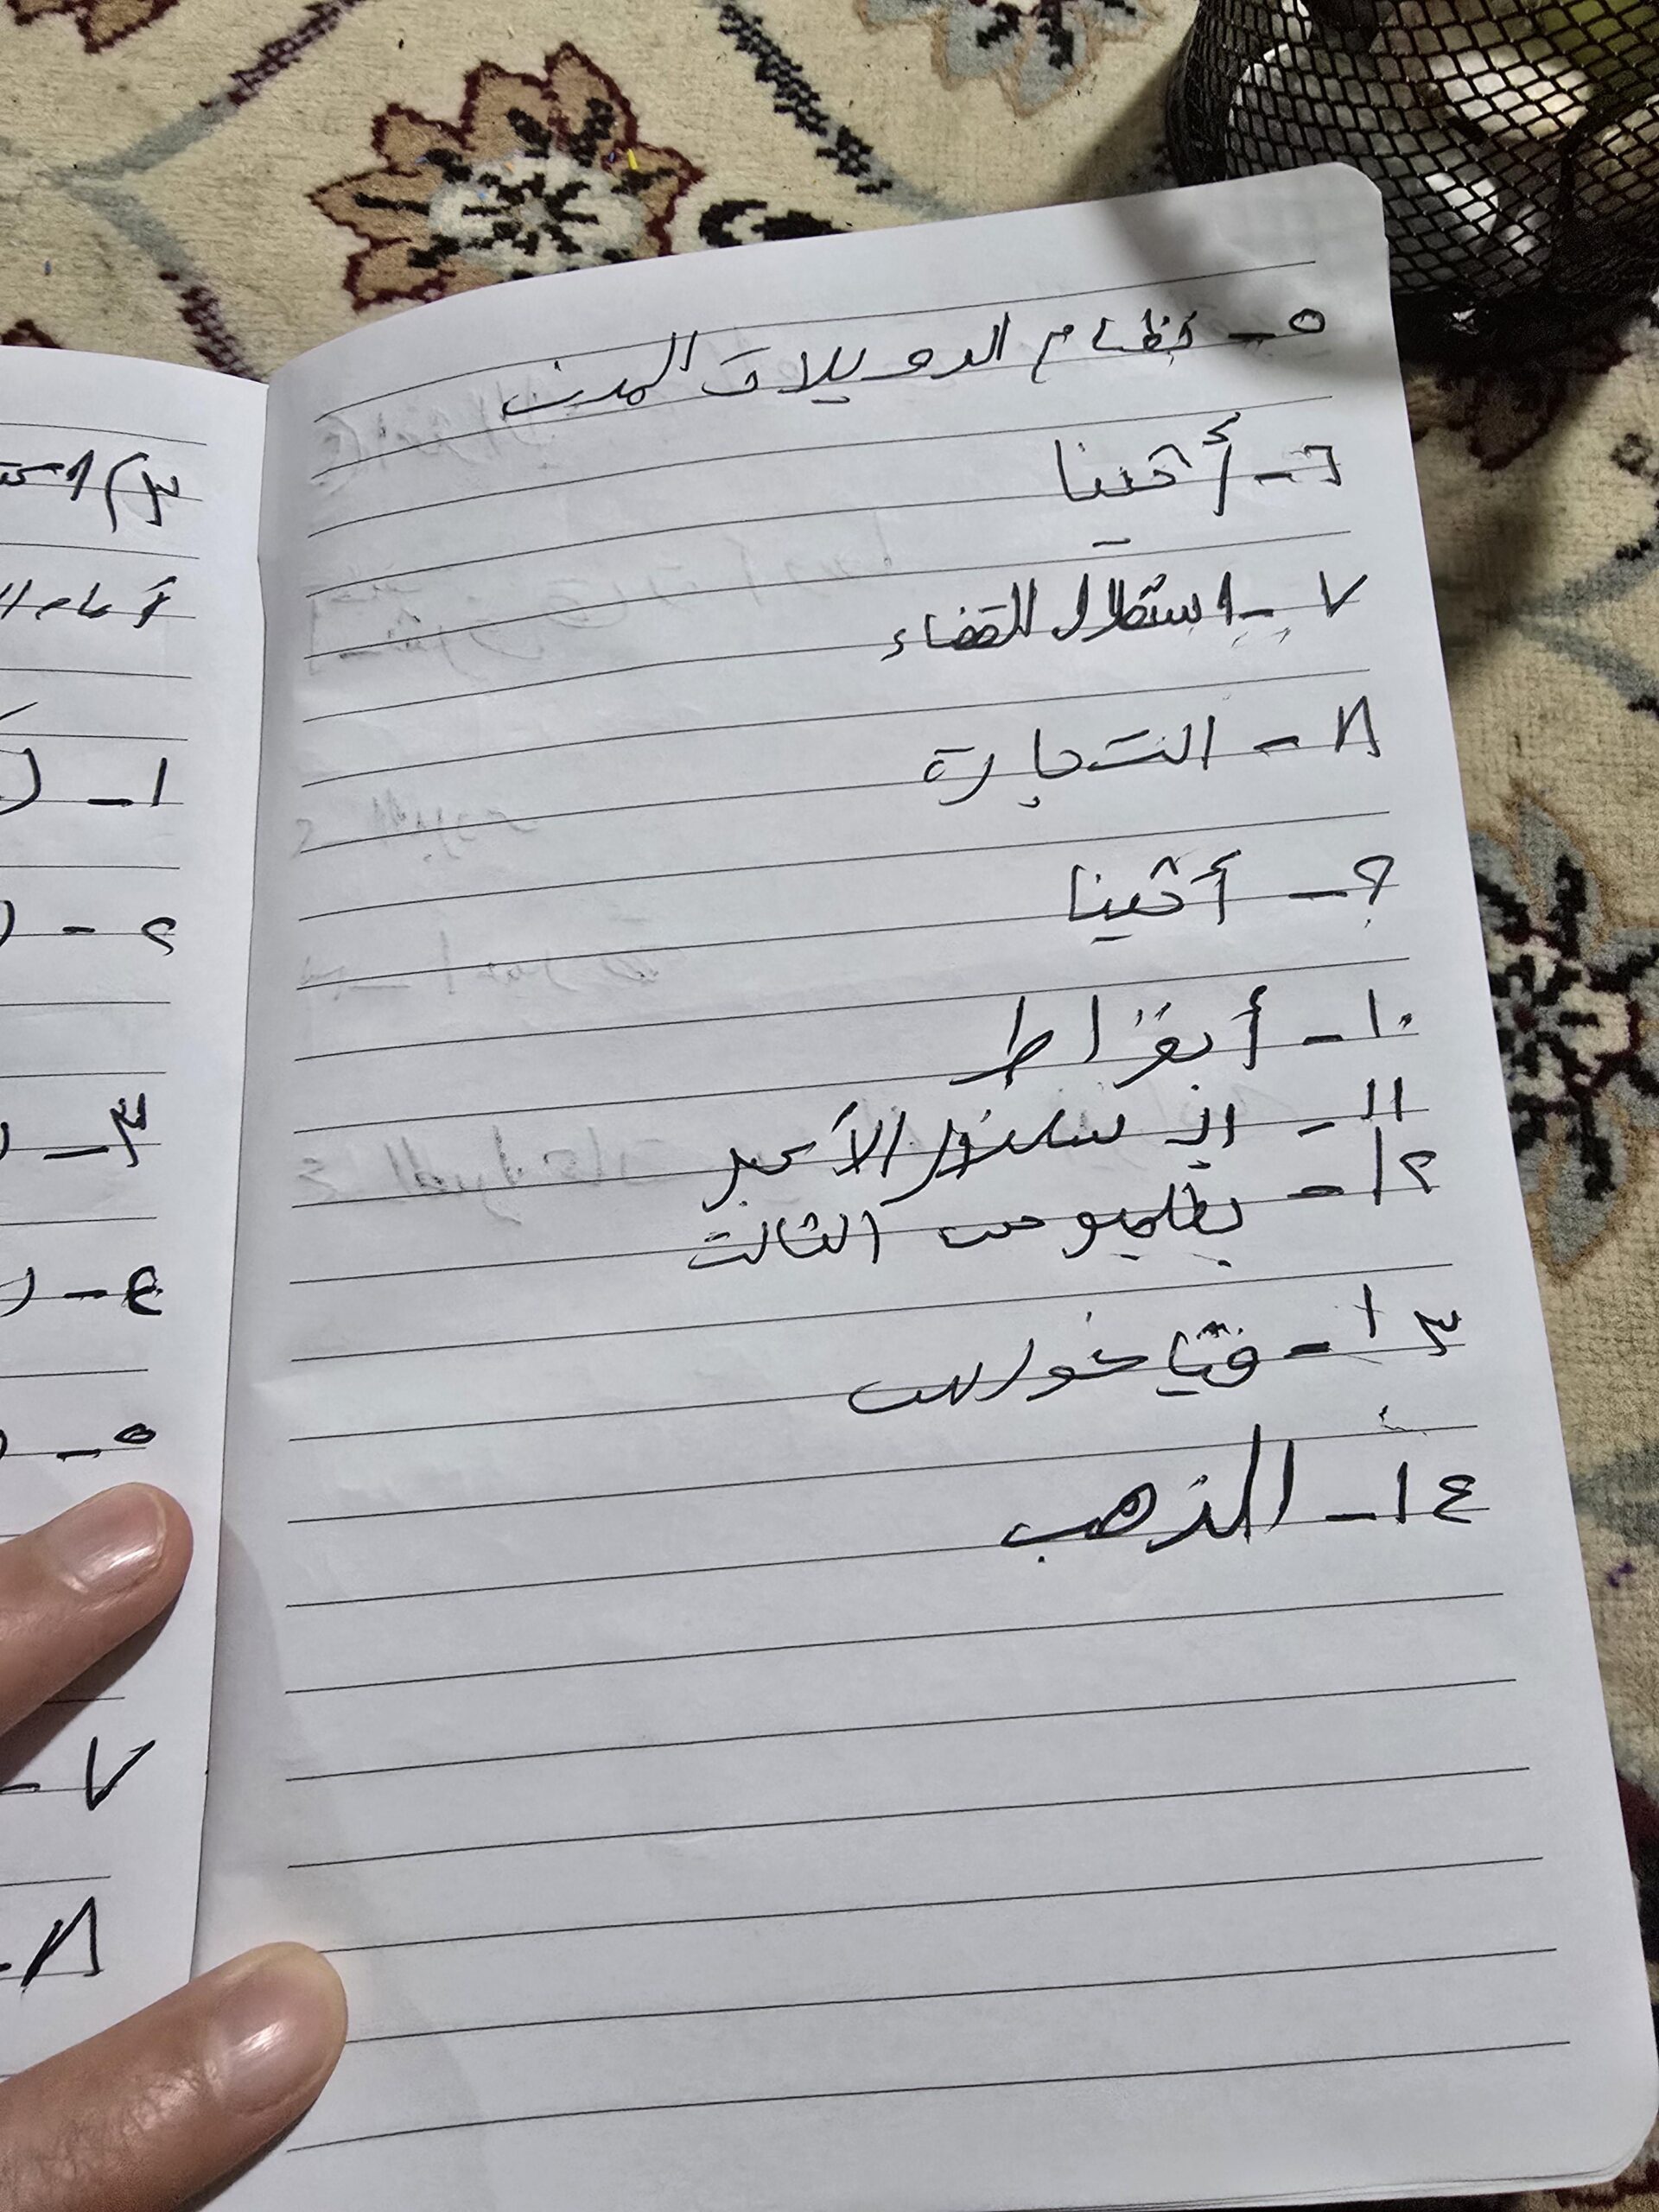 ٥- نظام الدويلات المدن
٦- أثينا
٧- استقلال القضاء
٨- التجارة
٩- أثينا
١٠- أبقراط
١١- الاسكندر الأكبر
١٢- بطليموس الثالث
١٣- فيثاغورس
١٤- الذهب
٣)
١-
٢-
٣-
٤-
٥-
٧-
٨-